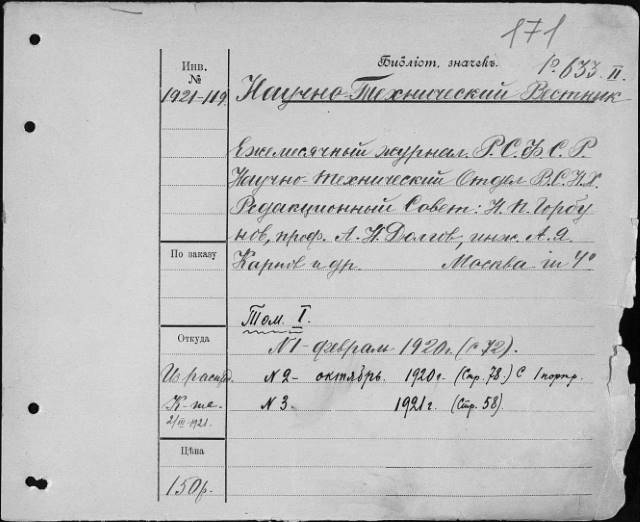 171
Инв.
№
1921-119
Библіот. значекъ.
Р 633 II.
Научно-Технический Вестник
Ежемесячный журнал. Р.С.Ф.С.Р.
Научно-технический Отдел В.С.Н.Х.
Редакционный Совет: Н.П. Горбу
нов, проф. А.Н. Долгов, инж. А.Я.
Карпов и др. Москва in 4°
По заказу
Том. I.
Откуда
N1 - февраль 1920г. (с 72).
N 2 - октябрь 1920г. (Стр. 78.) с 1 портр.
К-та
2/III 1921.
N 3. 1921г. (Стр. 58).
Цѣна
150р.